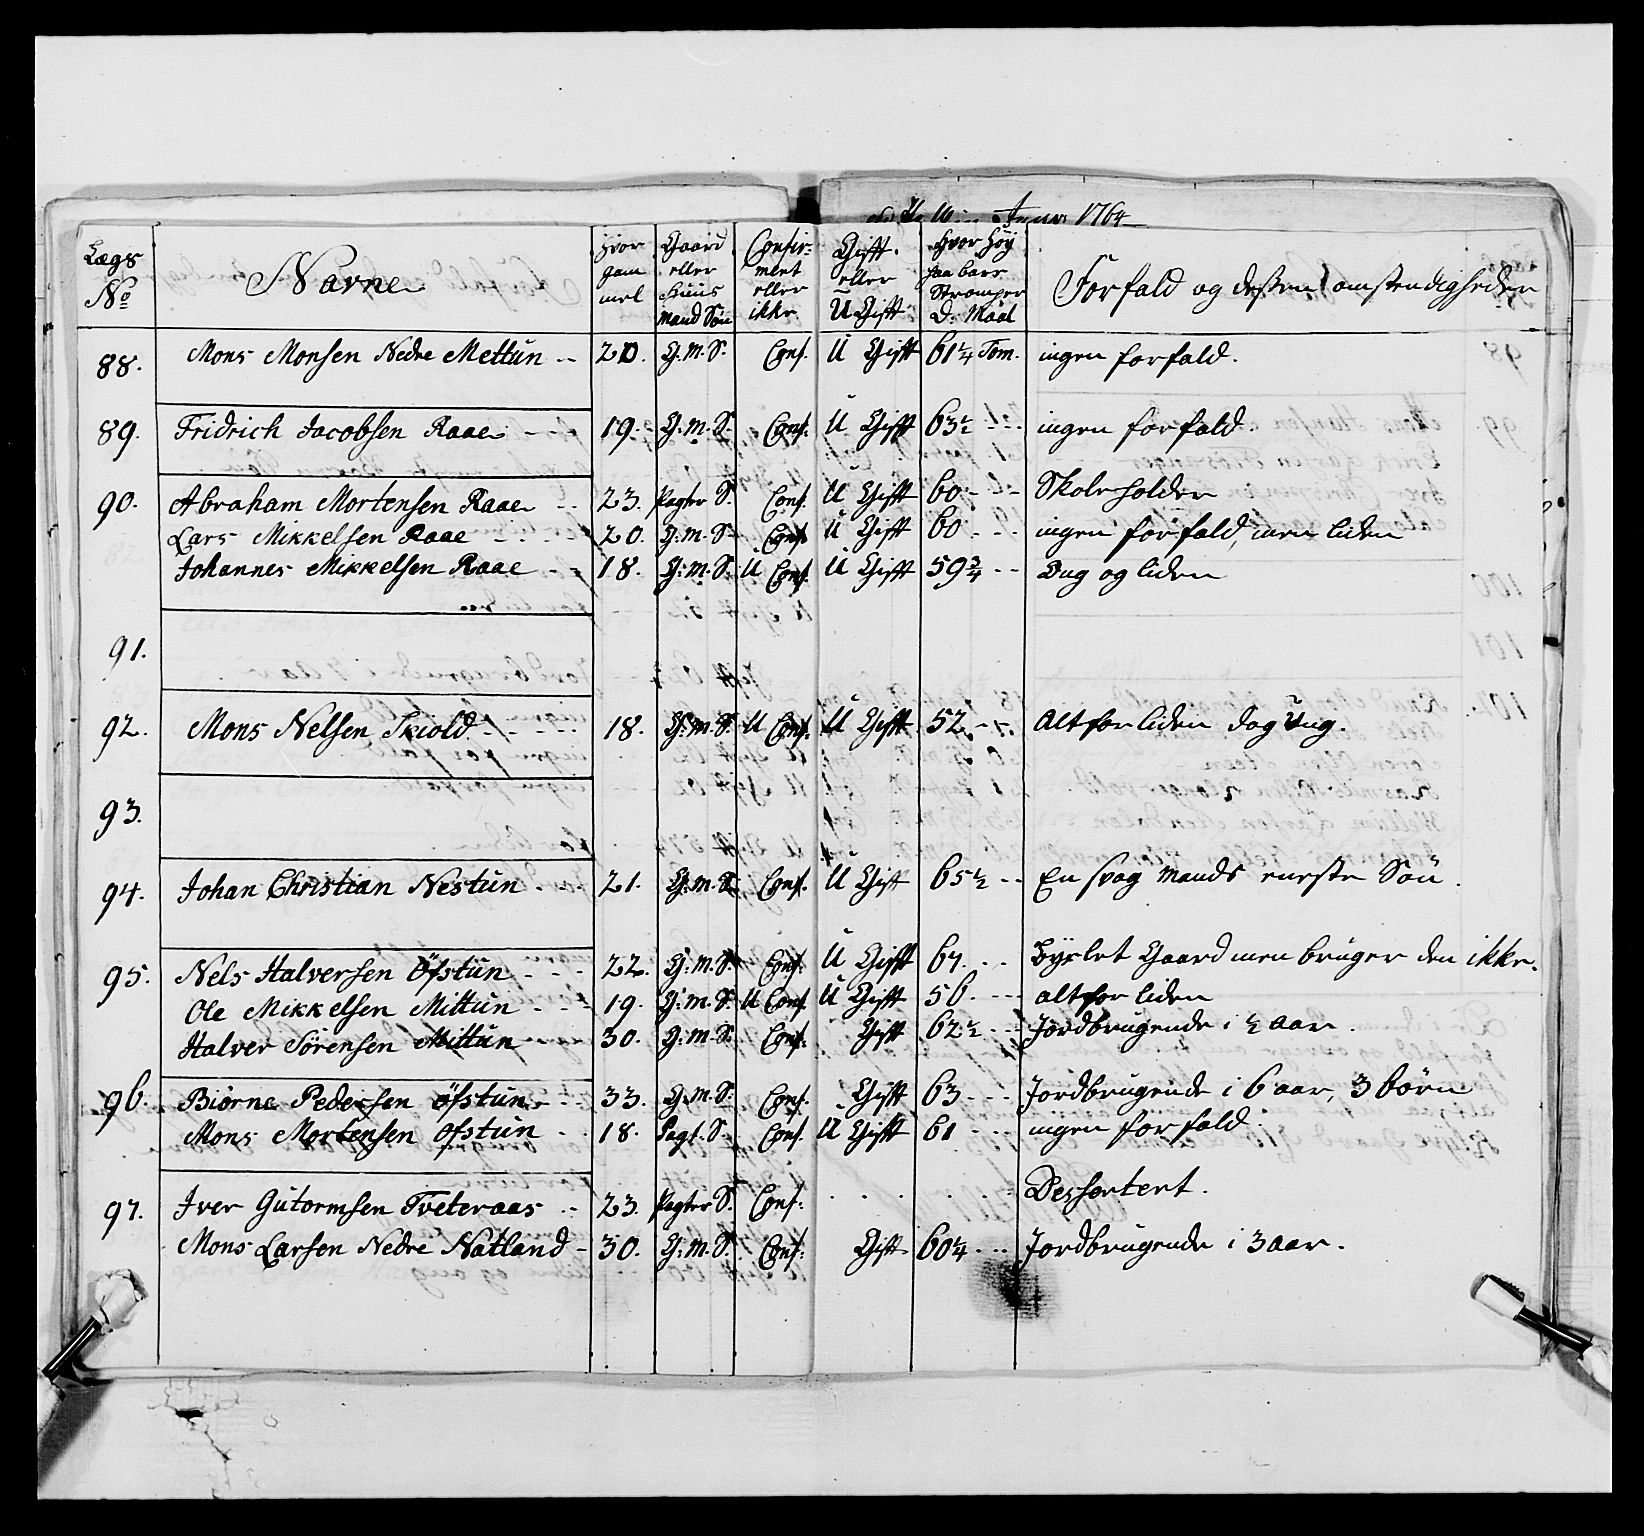 Anno 1764
Lægs No | Navne | Hvor gam mel | Gaard eller Huus Mand Søn | Confir- mert eller ikke | Gift eller U Gift | Hvor Høy paa bare Strømper D: Maal | Forfald og dessen omstendigheder
88. Mons Monsen Nedre Mettun 20. G. M. S. Conf. U Gift 61 1/4 Tom. ingen forfald.
89. Fridrich Jacobsen Raae 19. G. M. S. Conf: U Gift 63 1/2 ingen forfald.
90. Abraham Mortensen Raae 23. Pagter S. Conf. U Gift 60 Skoleholder
Lars Mikkelsen Raae 20. G. M. S. Conf. U Gift 60 ingen forfald, men liden
Johannes Mikkelsen Raae 18. G: M. S. U Conf. U Gift 59 3/4 Ung og liden
91.
92. Mons Nelsen Skiold 18. G: M. S. U Conf. U Gift 52 Altfor liden dog Ung.
93.
94. Johan Christian Nestun 21. G. M. S. Conf. U Gift 65 1/2 En svag Mands eneste Søn.
95. Nels Halversen Öfstun 22. G. M. S. Conf. U Gift 67 Byxlet Gaard men bruger den ikke.
Ole Mikkelsen Mittun 19. G. M. S. U Conf. U Gift 56. altfor liden
Halver Sörensen Mittun 30. G. M. S. Conf. Gift 62 1/2 Jordbrugende i 1/2 aar.
96. Biörne Pedersen Öfstun 33. G. M. S. Conf. Gift 63 Jordbrugende i 6 aar, 3 børn
Mons Mortensen Öfstun 18. Pagt. S. Conf. U Gift 61 ingen forfald
97. Iver Gutormsen Tveteraas 23. Pagter S. Conf: Desertert.
Mons Larsen Nedre Natland 30. G: M. S. Conf: Gift 60 1/4 Jordbrugende i 3 aar.
98
99
100
101
102